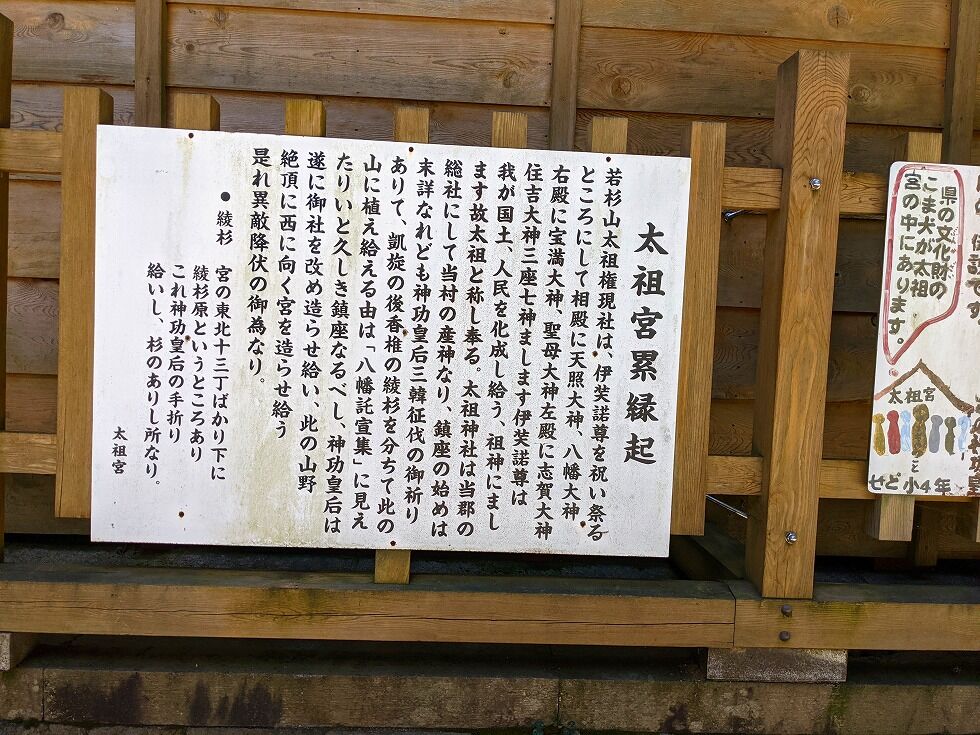 太祖宮累縁起
若杉山太祖権現社は、伊弉諾尊を祝い祭る
ところにして相殿に天照大神、八幡大神
右殿に宝満大神、聖母大神左殿に志賀大神
住吉大神三座七神まします伊弉諾尊は
我が国土、人民を化成し給う、祖神にまし
ます故太祖と称し奉る。太祖神社は当郡の
総社にして当村の産神なり、鎮座の始めは
末詳なれども神功皇后三韓征伐の御祈り
ありて、凱旋の後香椎の綾杉を分ちて此の
山に植え給える由は「八幡託宣集」に見え
たりいと久しき鎮座なるべし、神功皇后は
遂に御社を改め造らせ給い、此の山野
絶頂に西に向く宮を造らせ給う
是れ異敵降伏の御為なり。
●綾杉 宮の東北十三丁ばかり下に
綾杉原というところあり
これ神功皇后の手折り
給いし、杉のありし所なり。
太祖宮
県の文化財の
こま犬が太祖
宮の中にあります。
太祖宮
せど小4年